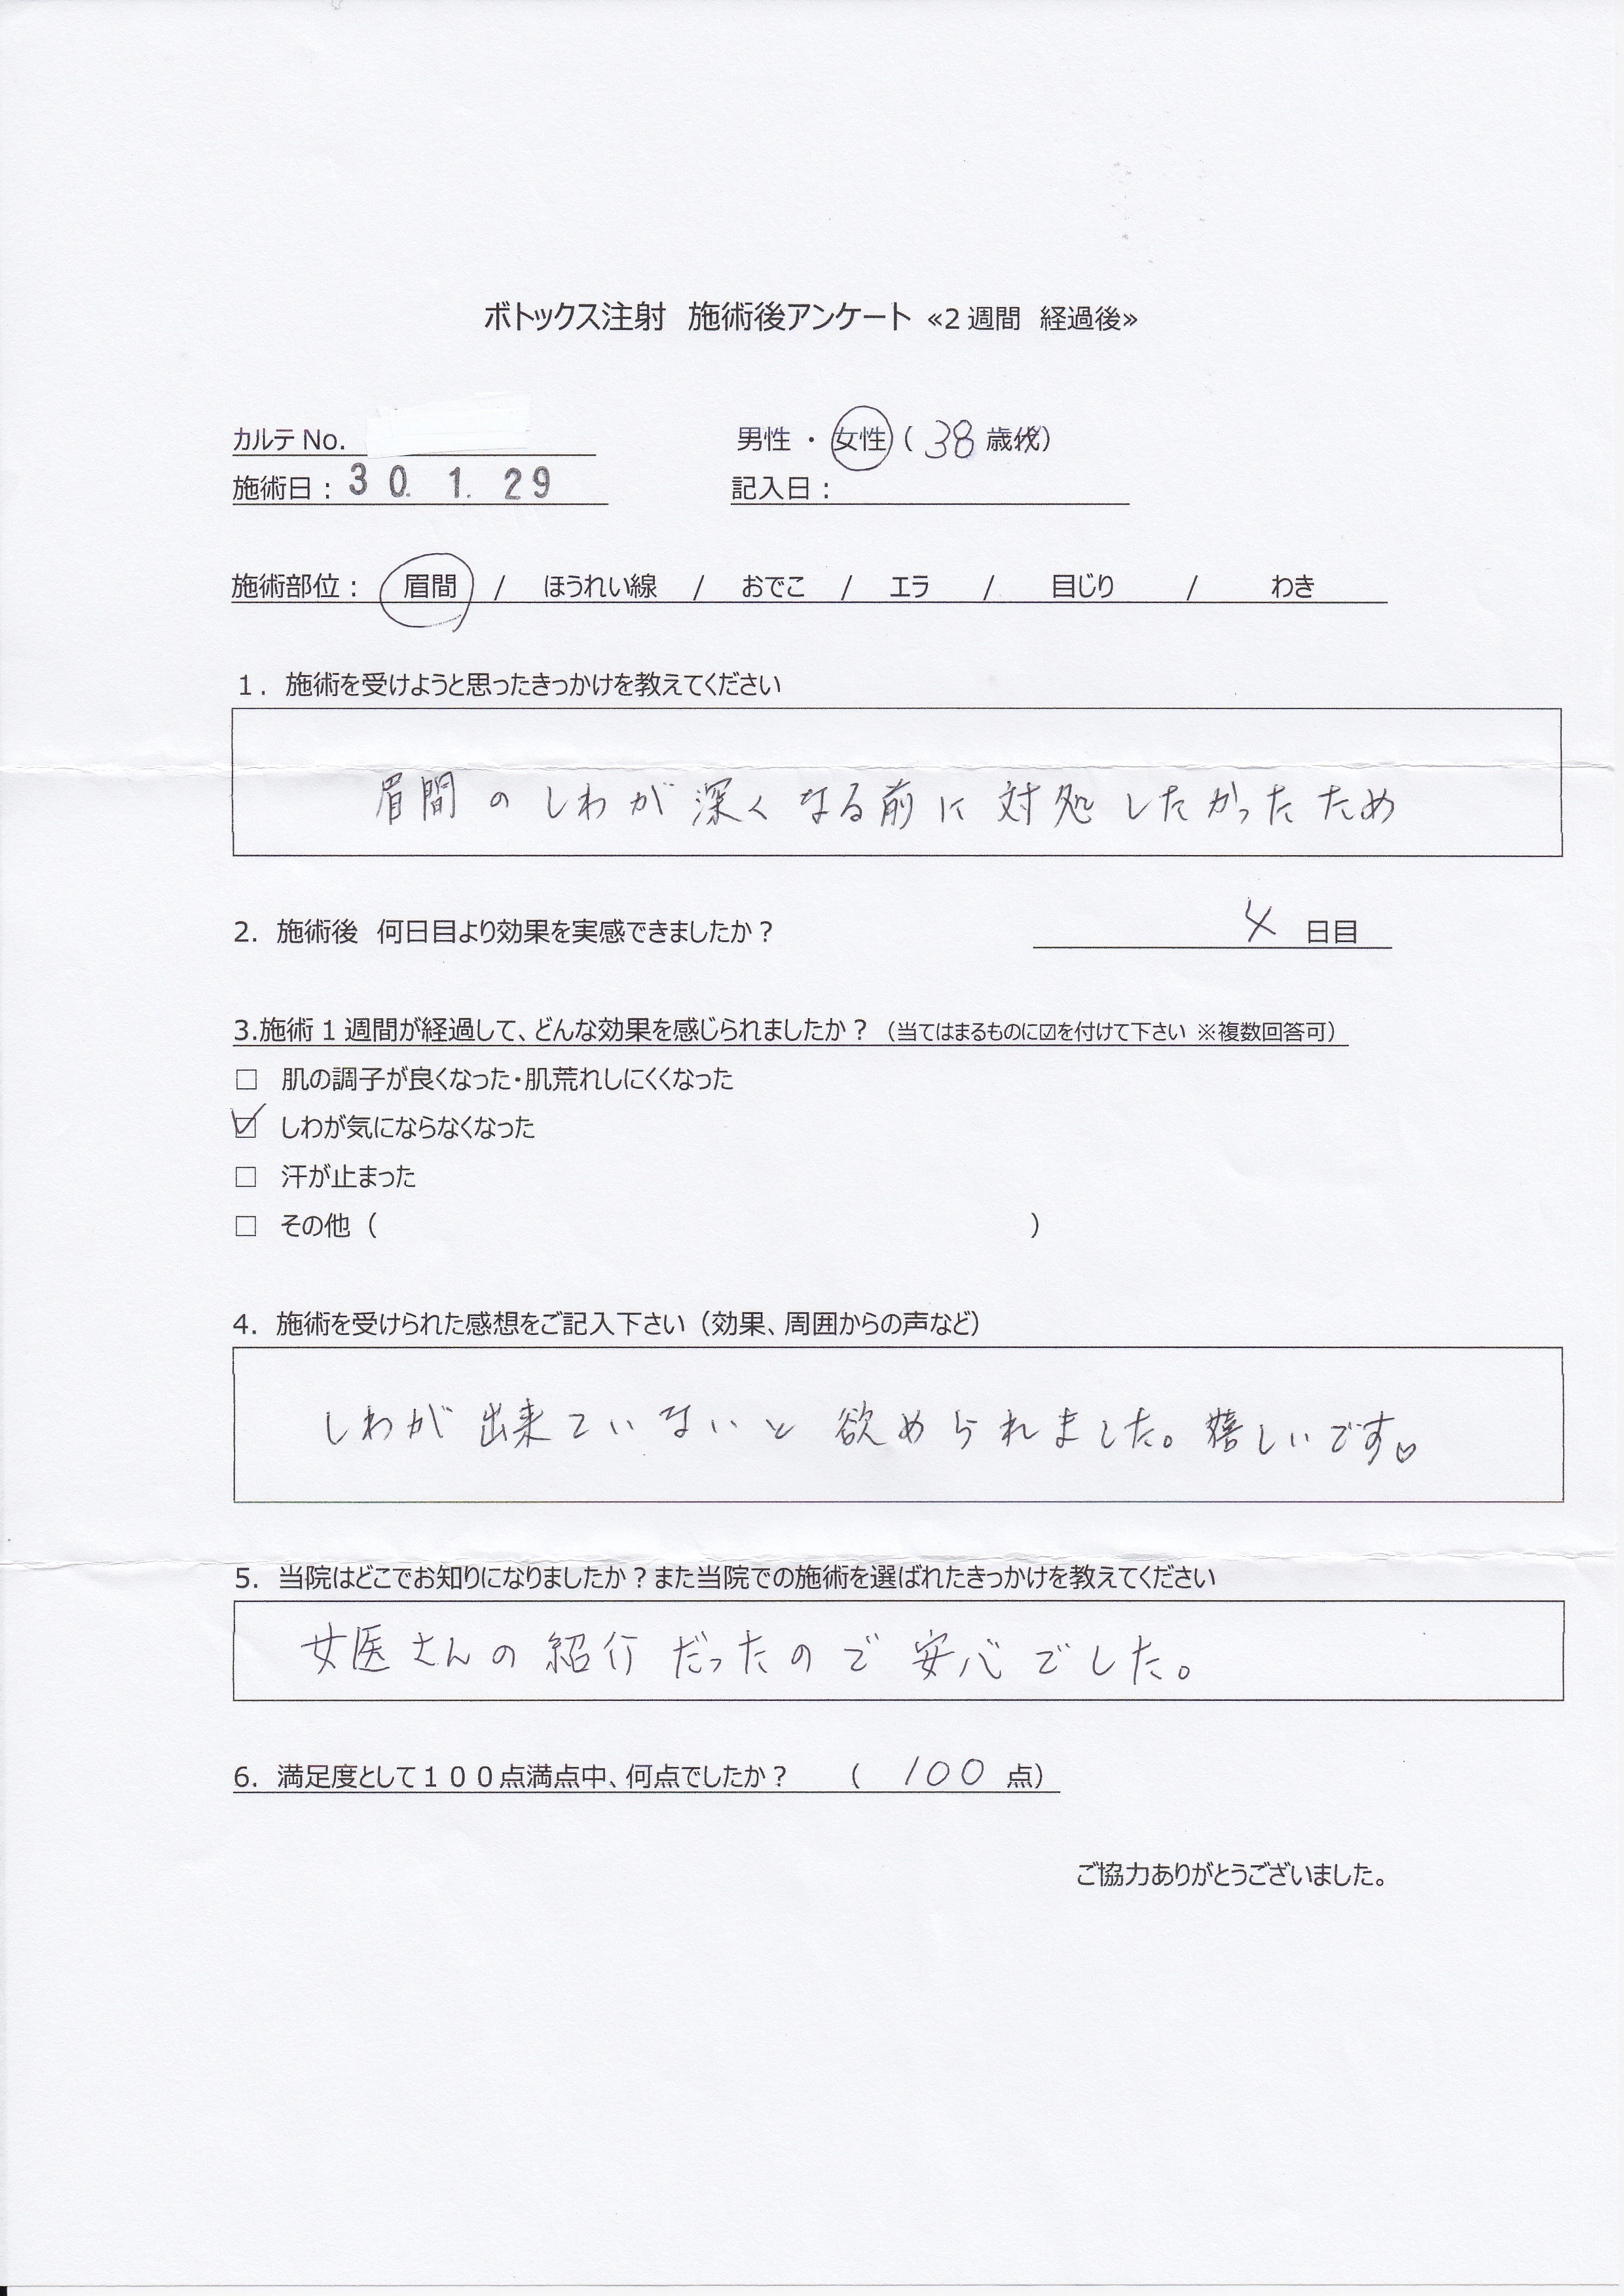 ボトックス注射　施術後アンケート «2 週間　経過後»
カルテ No.
男性 ・ 女性 ( 38 歳代)
施術日： 30. 1. 29
記入日：
施術部位： 眉間 / ほうれい線 / おでこ / エラ / 目じり / わき
１．施術を受けようと思ったきっかけを教えてください
眉間のしわが深くなる前に対処したかったため
2．施術後　何日目より効果を実感できましたか？ 4 日目
3.施術 1 週間が経過して、どんな効果を感じられましたか？（当てはまるものに☑を付けて下さい ※複数回答可）
□ 肌の調子が良くなった・肌荒れしにくくなった
☑ しわが気にならなくなった
□ 汗が止まった
□ その他（　　　）
4．施術を受けられた感想をご記入下さい（効果、周囲からの声など）
しわが出来ていないと欲められました。嬉しいです♡
5．当院はどこでお知りになりましたか？また当院での施術を選ばれたきっかけを教えてください
女医さんの紹行だったので安心でした。
6．満足度として１００点満点中、何点でしたか？　( 100 点)
ご協力ありがとうございました。